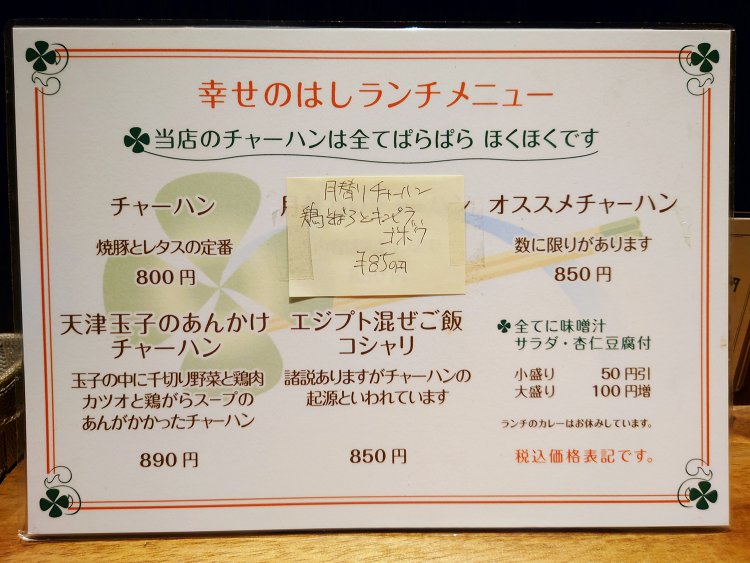 幸せのはしランチメニュー
当店のチャーハンは全てぱらぱら ほくほくです
チャーハン
焼豚とレタスの定番
800円
月替りチャーハン
鶏そぼろとキンピラ
ゴボウ
¥850円
オススメチャーハン
数に限りがあります
850円
天津玉子のあんかけ
チャーハン
玉子の中に千切り野菜と鶏肉
カツオと鶏がらスープの
あんがかかったチャーハン
890円
エジプト混ぜご飯
コシャリ
諸説ありますがチャーハンの
起源といわれています
850円
全てに味噌汁
サラダ・杏仁豆腐付
小盛り 50円引
大盛り 100円増
ランチのカレーはお休みしています。
税込価格表記です。